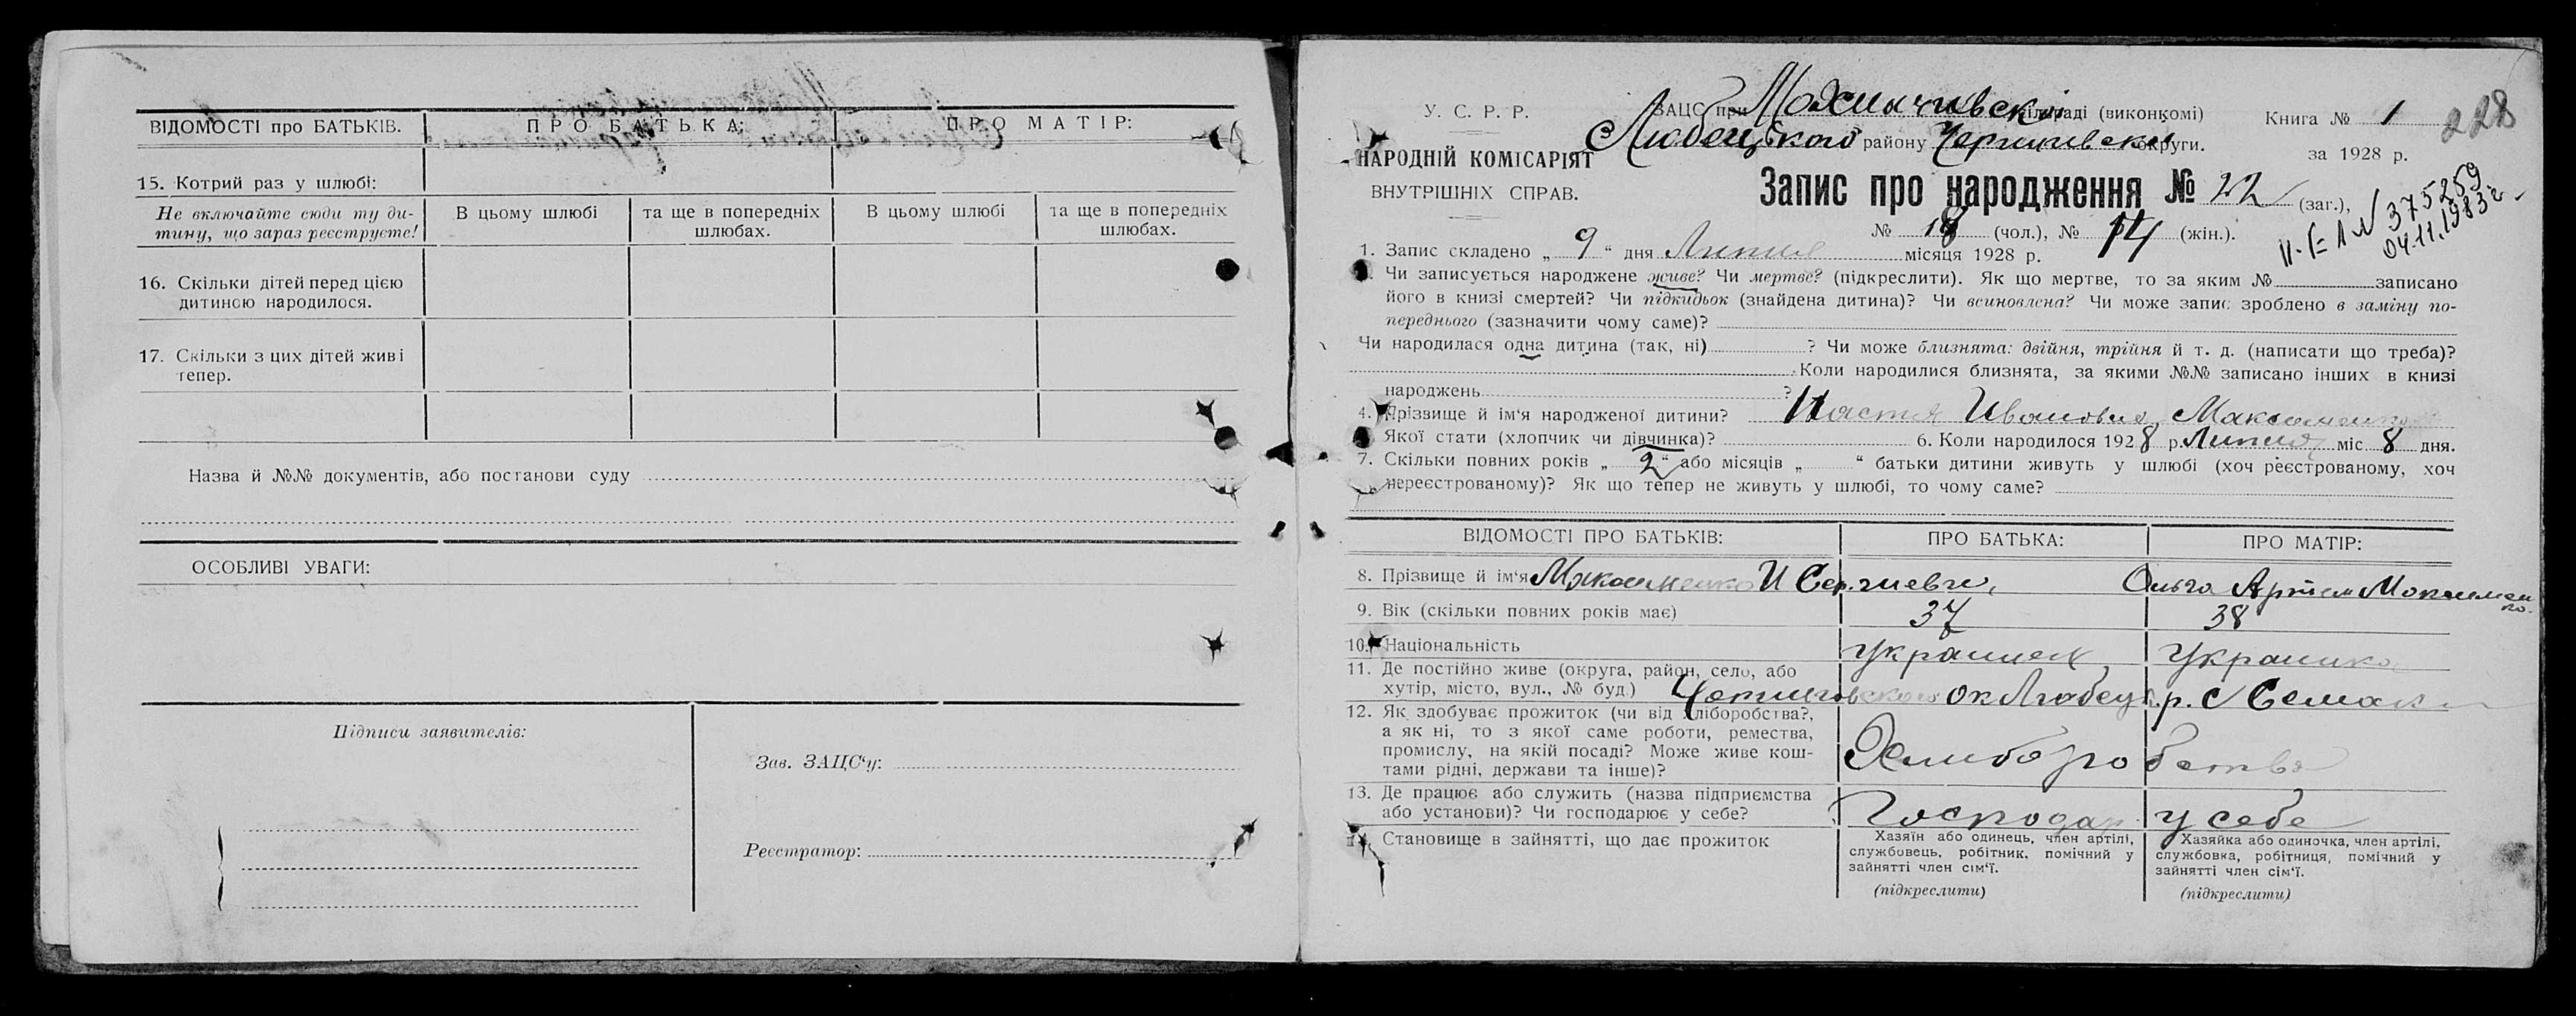 ВІДОМОСТІ про БАТЬКІВ.
ПРО БАТЬКА:
ПРО МАТІР:
15. Котрий раз у шлюбі:
Не включайте сюди ту ди-
тину, що зараз реєструєте!
В цьому шлюбі
та ще в попередніх
шлюбах.
В цьому шлюбі
та ще в попередніх
шлюбах.
16. Скільки дітей перед цією
дитиною народилося.
17. Скільки з цих дітей живі
тепер.
Назва й №№ документів, або постанови суду
ОСОБЛИВІ УВАГИ:
Підписи заявителів:
Зав. ЗАЦС'у:
Реєстратор:
У. С. Р. Р.
НАРОДНІЙ КОМІСАРІЯТ
ВНУТРІШНІХ СПРАВ.
ЗАЦС при сільраді (виконкомі)
Любецького району Чернигівскі округи.
Книга № 1
за 1928 р.
228
Запис про народження № 22 (заг.),
№ 18 (чол.), № 14 (жін.).
№ 375259
04.11.1983г.
1. Запис складено „ 9 “ дня Липня місяця 1928 р.
Чи записується народжене живе? Чи мертве? (підкреслити). Як що мертве, то за яким № записано
його в книзі смертей? Чи підкидьок (знайдена дитина)? Чи всиновлена? Чи може запис зроблено в заміну по-
переднього (зазначити чому саме)?
Чи народилася одна дитина (так, ні) ? Чи може близнята: двійня, трійня й т. д. (написати що треба)?
Коли народилися близнята, за якими №№ записано інших в книзі
народжень ?
4. Прізвище й ім'я народженої дитини? Настя Ивановна Максименко
Якої стати (хлопчик чи дівчинка)? 6. Коли народилося 1928 р. Липня міс. 8 дня.
7. Скільки повних років „ 2 “ або місяців „ “ батьки дитини живуть у шлюбі (хоч реєстрованому, хоч
нереєстрованому)? Як що тепер не живуть у шлюбі, то чому саме?
ВІДОМОСТІ ПРО БАТЬКІВ:
ПРО БАТЬКА:
ПРО МАТІР:
8. Прізвище й ім'я Максименко И Сергиевич, Ольга Артем Максименко
9. Вік (скільки повних років має) 37 38
10. Національність Украинец Украинка
11. Де постійно живе (округа, район, село, або
хутір, місто, вул., № буд.) ок Любец. р. с Семаки
12. Як здобуває прожиток (чи від хліборобства?,
а як ні, то з якої саме роботи, ремества,
промислу, на якій посаді? Може живе кош-
тами рідні, держави та інше)? Хлиборобство
13. Де працює або служить (назва підприємства
або установи)? Чи господарює у себе? Господар у себе
14. Становище в зайнятті, що дає прожиток
Хазяїн або одинець, член артілі,
службовець, робітник, помічний у
зайнятті член сім'ї.
(підкреслити)
Хазяйка або одиночка, член артілі,
службовка, робітниця, помічний у
зайнятті член сім'ї.
(підкреслити)